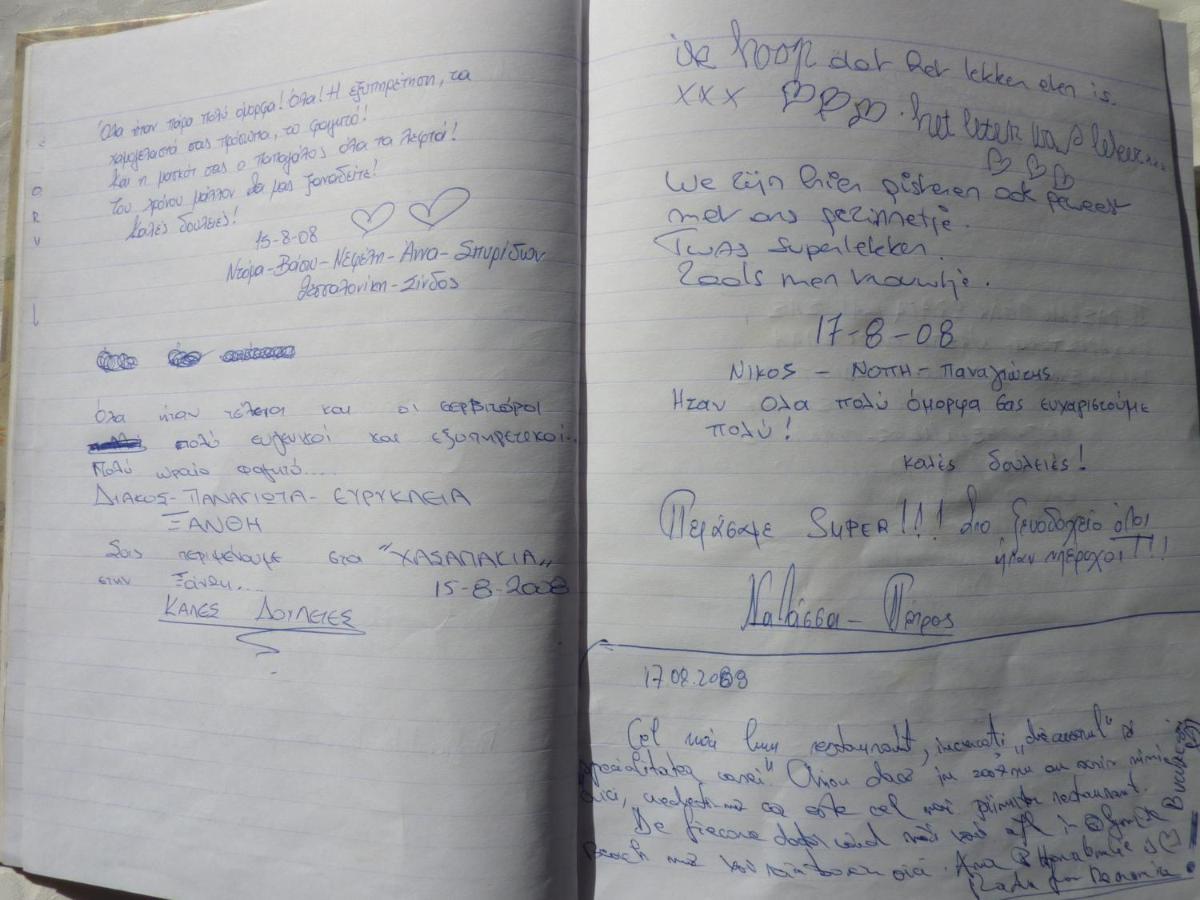 Όλα ήταν πάρα πολύ όμορφα! Όλα! Η εξυπηρέτηση, τα
χαμογελαστά σας πρόσωπα, το φαγητό!
Και η μασκότ σας ο παπαγάλος όλα τα λεφτά!
Του χρόνου μάλλον θα μας ξαναδείτε!
Καλές δουλειές!
15-8-08
Ντόρα-Βάσω-Νεφέλη-Άννα-Σπυρίδων
Θεσσαλονίκη-Σίνδος
Όλα ήταν τέλεια και οι σερβιτόροι
πολύ ευγενικοί και εξυπηρετικοί..
Πολύ ωραίο φαγητό....
ΔΙΑΚΟΣ-ΠΑΝΑΓΙΩΤΑ-ΕΥΡΥΚΛΕΙΑ
ΞΑΝΘΗ
Σας περιμένουμε στα "ΧΑΣΑΠΑΚΙΑ"
στην Ξάνθη.... 15-8-2008
ΚΑΛΕΣ ΔΟΥΛΕΙΕΣ
ik hoop dat het lekker eten is.
xxx het eten was
We zijn hier gisteren ook geweest
met ons gezinnetje.
Twas superlekker.
Zoals men vrouwtje.
17-8-08
Νικος - Νοπη - Παναγιώτης
Ηταν ολα πολύ όμορφα σας ευχαριστούμε
πολύ!
καλές δουλειές!
Περάσαμε SUPER!!! Στο ξενοδοχείο όλοι
ήταν υπέροχοι!!!
Νατάσσα - Πέτρος
17.08.2008
Cel mai bun restaurant, incercati
specialitatea casei"
aici, este cel mai restaurant.
De fiecare
Beach Ana &
from Romania